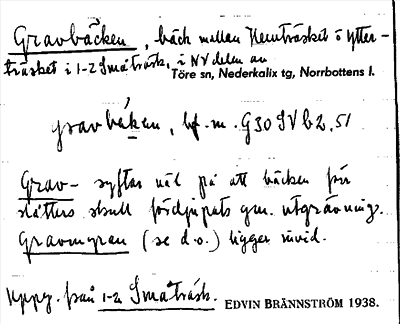 Gravbäcken, bäck mellan Hemträsket o Ytter-
träsket i 1-2 Småträsk, i NV delen av
Töre sn, Nederkalix tg, Norrbottens l.
gravbäken, bf. m. G30 SV b2, 51
Grav- syftar väl på att bäcken för
slåtterns skull fördjupats gm. utgrävning.
Gravmyran (se d.o.) ligger invid.
Uppg. från 1-2 Småträsk.
EDVIN BRÄNNSTRÖM 1938.